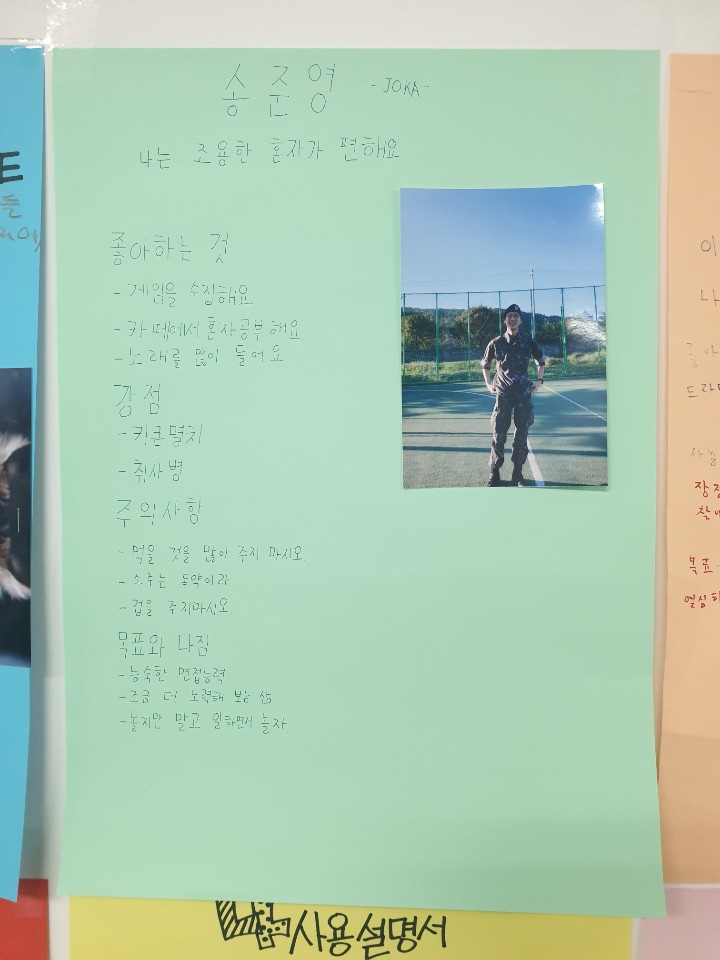 송준영 -JOKA-
나는 조용한 혼자가 편해요
좋아하는 것
- 게임을 수집해요
- 카페에서 혼자공부해요
- 노래를 많이 들어요
강점
- 키큰멸치
- 취사병
주의사항
- 먹을 것을 많이 주지 마시오.
- 소주는 독약이라
- 겁을 주지마시오.
목표와 다짐
- 능숙한 면접능력
- 조금 더 노력해 보는 삶
- 놀지만 말고 일하면서 놀자
사용설명서
E
들
이
나
드라마
장점
목표
열심히